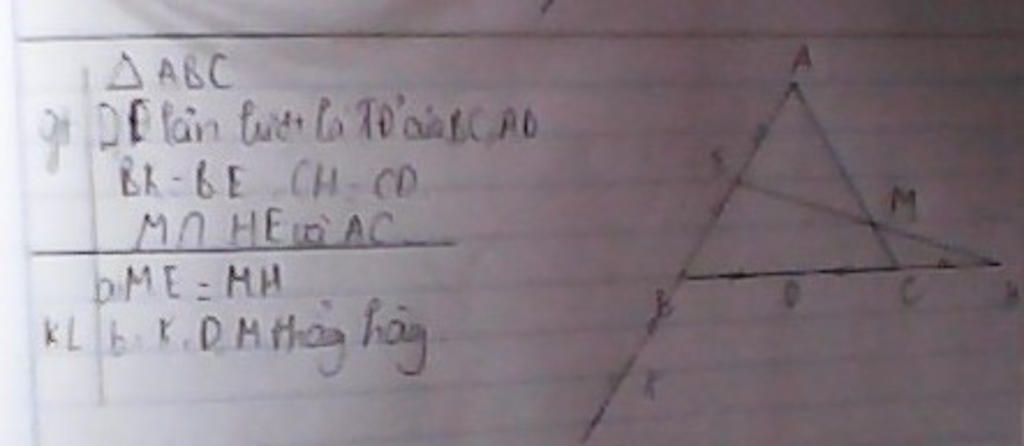 △ABC
gt D E lần lượt là TĐ của BC, AB
BK = BE CH = CD
M ∩ HE và AC
a. ME = MH
KL b. K, D, M thẳng hàng
A
E
M
B
D
C
H
K